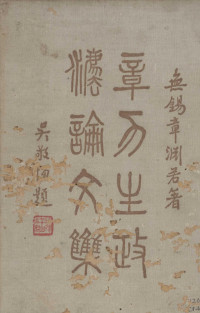 無錫章淵若著
章力生政
灋論文集
吳敬恆題